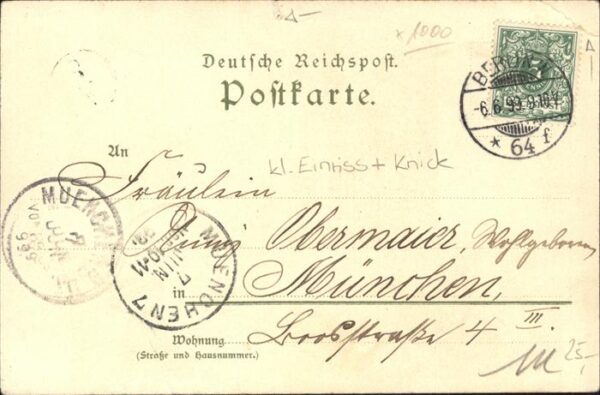 x 1000
Deutsche Reichspost.
Postkarte.
BERLIN
-6.6.99.9-10V
* 64 f
An
kl. Einriss + Knick
Fräulein
Obermaier, Wohlgeboren,
MUENCHEN
JUN
99
MUENCHEN 7
7
JUN
in München,
Wohnung Boosstraße 4 III.
(Straße und Hausnummer.)
25,-